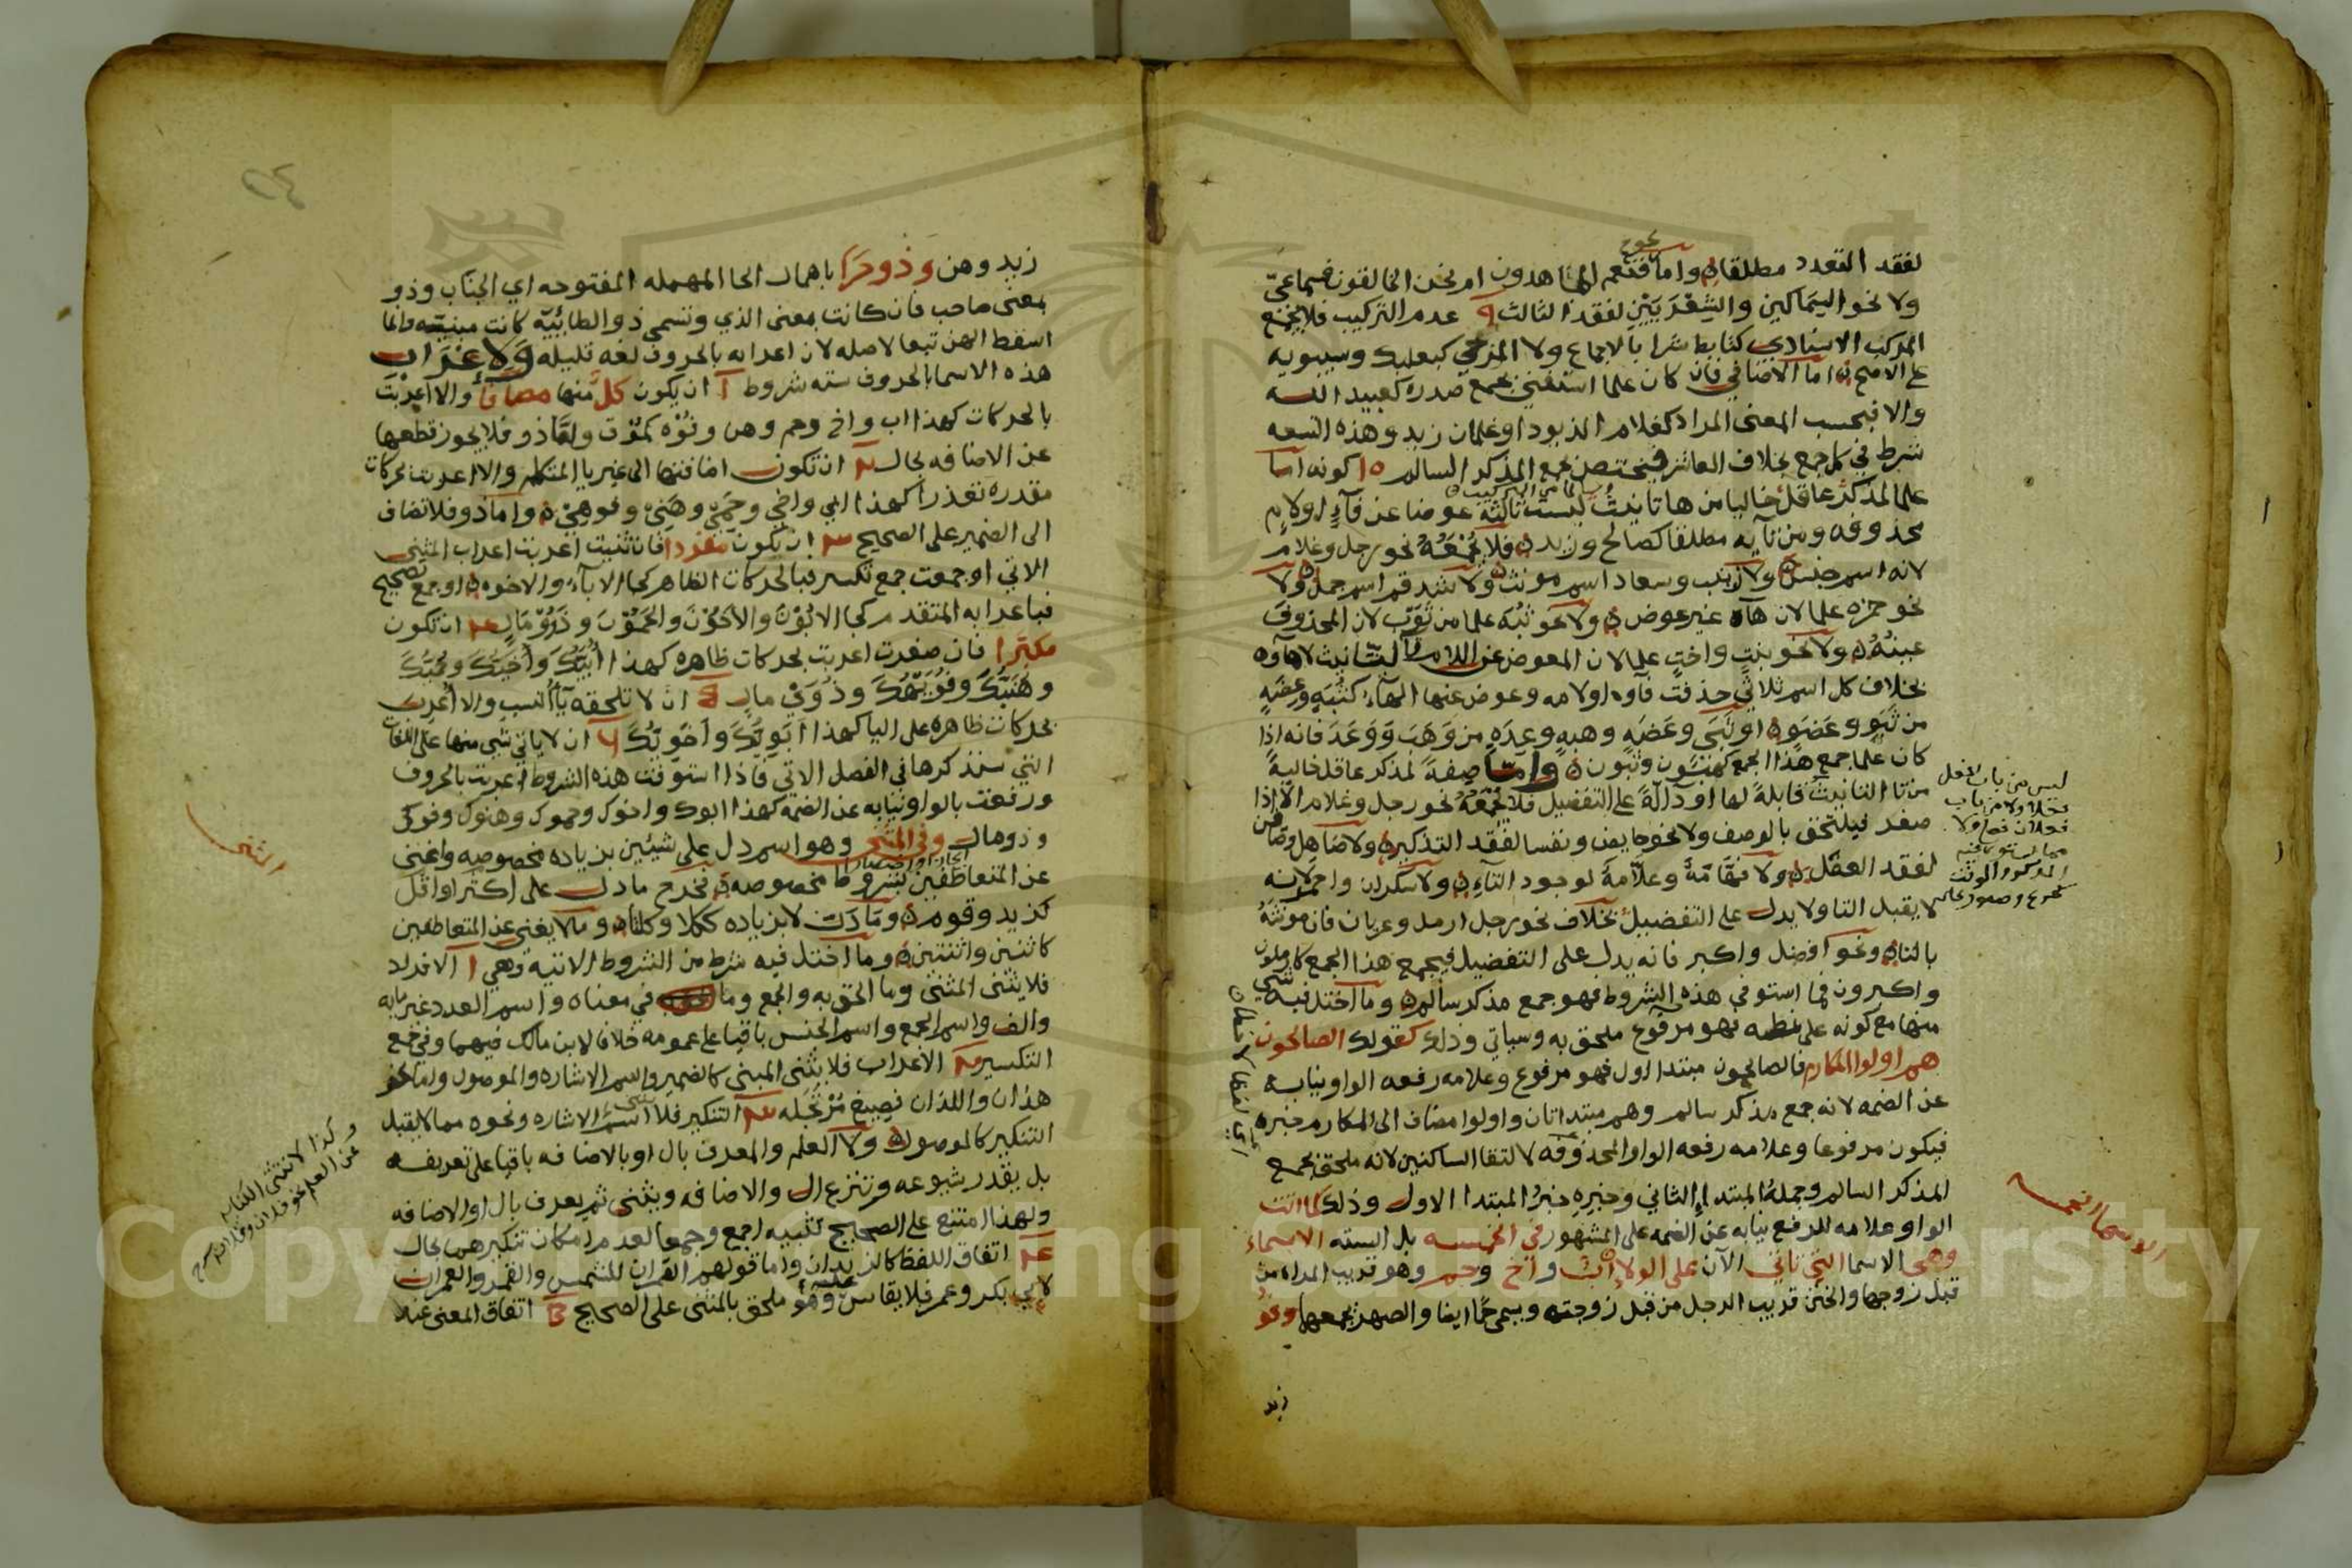 لفقد التعدد مطلقا واما فنعم الماهدون ام نحن الخالقون فسماعي
ولا نحو السماكين والشعريين لفقد الثالث عدم التركيب فلا يجمع
المركب الاسنادي كتابط شرا بالاجماع ولا المزجي كبعلبك وسيبويه
على الاصح اما الاضافي فان كان علما استغني بجمع صدره كعبيد الله
والا فبحسب المعنى المراد كغلام الزيود او غلمان زيد وهذه التسعه
شرط في كل جمع بخلاف العاشر فيختص بجمع المذكر السالم كونه اما
علما لمذكر عاقل خاليا من ها تانيث ليست ثالثة عوضا عن فآء او لام
محذوفه ومن تآيه مطلقا كصالح وزيد فلا تجمعه نحو رجل وغلام
لانه اسم جنس ولا زينب وسعاد اسم مونث ولا شدقم اسم جمل ولا
نحو حمزه علما لان هآه غير عوض ولا نحو ثبه علما من ثوب لان المحذوف
عينه ولا نحو بنت واخت علما لان المعوض عن اللام تا التانيث لا هآوه
بخلاف كل اسم ثلاثي حذفت فآوه او لامه وعوض عنها الهآء كثبه وعضه
من ثبو وعضو او ثبي وعضه وهبه وعده من وهب ووعد فانه اذا
كان علما جمع هذا الجمع كهبون وثبون واما صفة لمذكر عاقل خالية
من تا التانيث قابلة لها او دالة على التفضيل فلا تجمعه نحو رجل وغلام الا اذا
صغر فيلتحق بالوصف ولا نحو حايض ونفسا لفقد التذكير ولا صاهل
لفقد العقل ولا فهامة وعلامة لوجود التآء ولا سكران واحمر لانه
لا يقبل التا ولا يدل على التفضيل بخلاف نحو رجل ارمل وعريان فان مونثه
بالتا ونحو افضل واكبر فانه يدل على التفضيل فيجمع هذا الجمع كارملون
واكبرون فما استوفى هذه الشروط فهو جمع مذكر سالم وما اختل فيه شي
منها مع كونه على نمطه فهو مرفوع ملحق به وسياتي وذلك كقولك الصالحون
هم اولوا المكارم فالصالحون مبتدا اول فهو مرفوع وعلامه رفعه الواو نيابه
عن الضمه لانه جمع مذكر سالم وهم مبتدا ثان واولوا مضاف الى المكارم خبره
فيكون مرفوعا وعلامه رفعه الواو المحذوفه لالتقا الساكنين لانه ملحق بجمع
المذكر السالم وجملة المبتدا الثاني وخبره خبر المبتدا الاول وذلك كما اتت
الواو علامه للرفع نيابه عن الضمه على المشهور في الخمسه بل السته الاسماء
وهي الاسما التي تاتي الآن على الولاء اب واخ وحم وهو قريب المراه من
قبل زوجها والختن قريب الرجل من قبل زوجته ويسمى حما ايضا والصهر يجمعها وفو
زيد
ليس من باب افعل
فعلا ولا من باب
فعلان فعلى ولا
مما يستوي فيه
المذكر والمونث
الاسما الخمسه
زيد وهن وذو حرا باهمال الحا المهمله المفتوحه اي الجناب وذو
بمعنى صاحب فان كانت بمعنى الذي وتسمى ذو الطائية كانت مبنيه وانما
اسقط الهن تبعا لاصله لان اعرابه بالحروف لغه قليله ولاعراب
هذه الاسما بالحروف سته شروط ا ان يكون كل منها مضافا والا اعربت
بالحركات كهذا اب واخ وحم وهن وفوه كموت ولقا ذو فلا يجوز قطعها
عن الاضافه بحال ان تكون اضافتها الى غير يا المتكلم والا اعربت بحركات
مقدره تعذرا كهذا ابي واخي وحمي وهني ونحوهن واما ذو فلا تضاف
الى الضمير على الصحيح ان تكون مفردا فان ثنيت اعربت اعراب المثنى
الاتي او جمعت جمع تكسير فبالحركات الظاهر كجا الابآء والاخوه او جمع تصحيح
فباعرابه المتقدم كجا الابون والاخون والحمون وذوو مال ان تكون
مكبرا فان صغرت اعربت بحركات ظاهره كهذا ابيك واخيك وحميك
وهنيك وفويهك وذوي مال ان لا تلحقه يآ النسب والا اعرب
بحركات ظاهره على اليا كهذا ابويك واخويك ان لا ياتي شي منها على اللغات
التي سنذكرها في الفصل الاتي فاذا استوفت هذه الشروط اعربت بالحروف
ورفعت بالواو نيابه عن الضمه كهذا ابوك واخوك وحموك وهنوك وفوك
وذو مال وفي المثنى وهو اسم دل على شيئين بزياده مخصوصه واغنى
عن المتعاطفين بشروط مخصوصه فخرج ما دل على اكثر او اقل
كزيد وقوم وما دل لا بزياده ككلا وكلتا وما لا يغني عن المتعاطفين
كاثنين واثنتين وما اختل فيه شرط من الشروط الاتيه وهي ا الافراد
فلا يثنى المثنى وما الحق به والجمع وما في معناه واسم العدد غير مايه
والف واسم الجمع واسم الجنس باقيا على عمومه خلافا لابن مالك فيهما وفي جمع
التكسير الاعراب فلا يثنى المبني كالضمير واسم الاشاره والموصول واما نحو
هذان واللذان فصيغ مرتجله التنكير فلا يثنى اسم الاشاره ونحوه مما لا يقبل
التنكير كالموصول ولا العلم والمعرف بال او بالاضافه باقيا على تعريفه
بل يقدر شيوعه وتنزع ال والاضافه ويثنى ثم يعرف بال او الاضافه
ولهذا امتنع على الصحيح تثنيه اجمع وجمعا لعدم امكان تنكيرهما بحال
اتفاق اللفظ كالزيدان واما قولهم القمران للشمس والقمر والعمران
لابي بكر وعمر فلا يقاس عليه وهو ملحق بالمثنى على الصحيح اتفاق المعنى عند
المثنى
وكذا لا تثنى الكنايه
عن العلم نحو فلان وفلانه